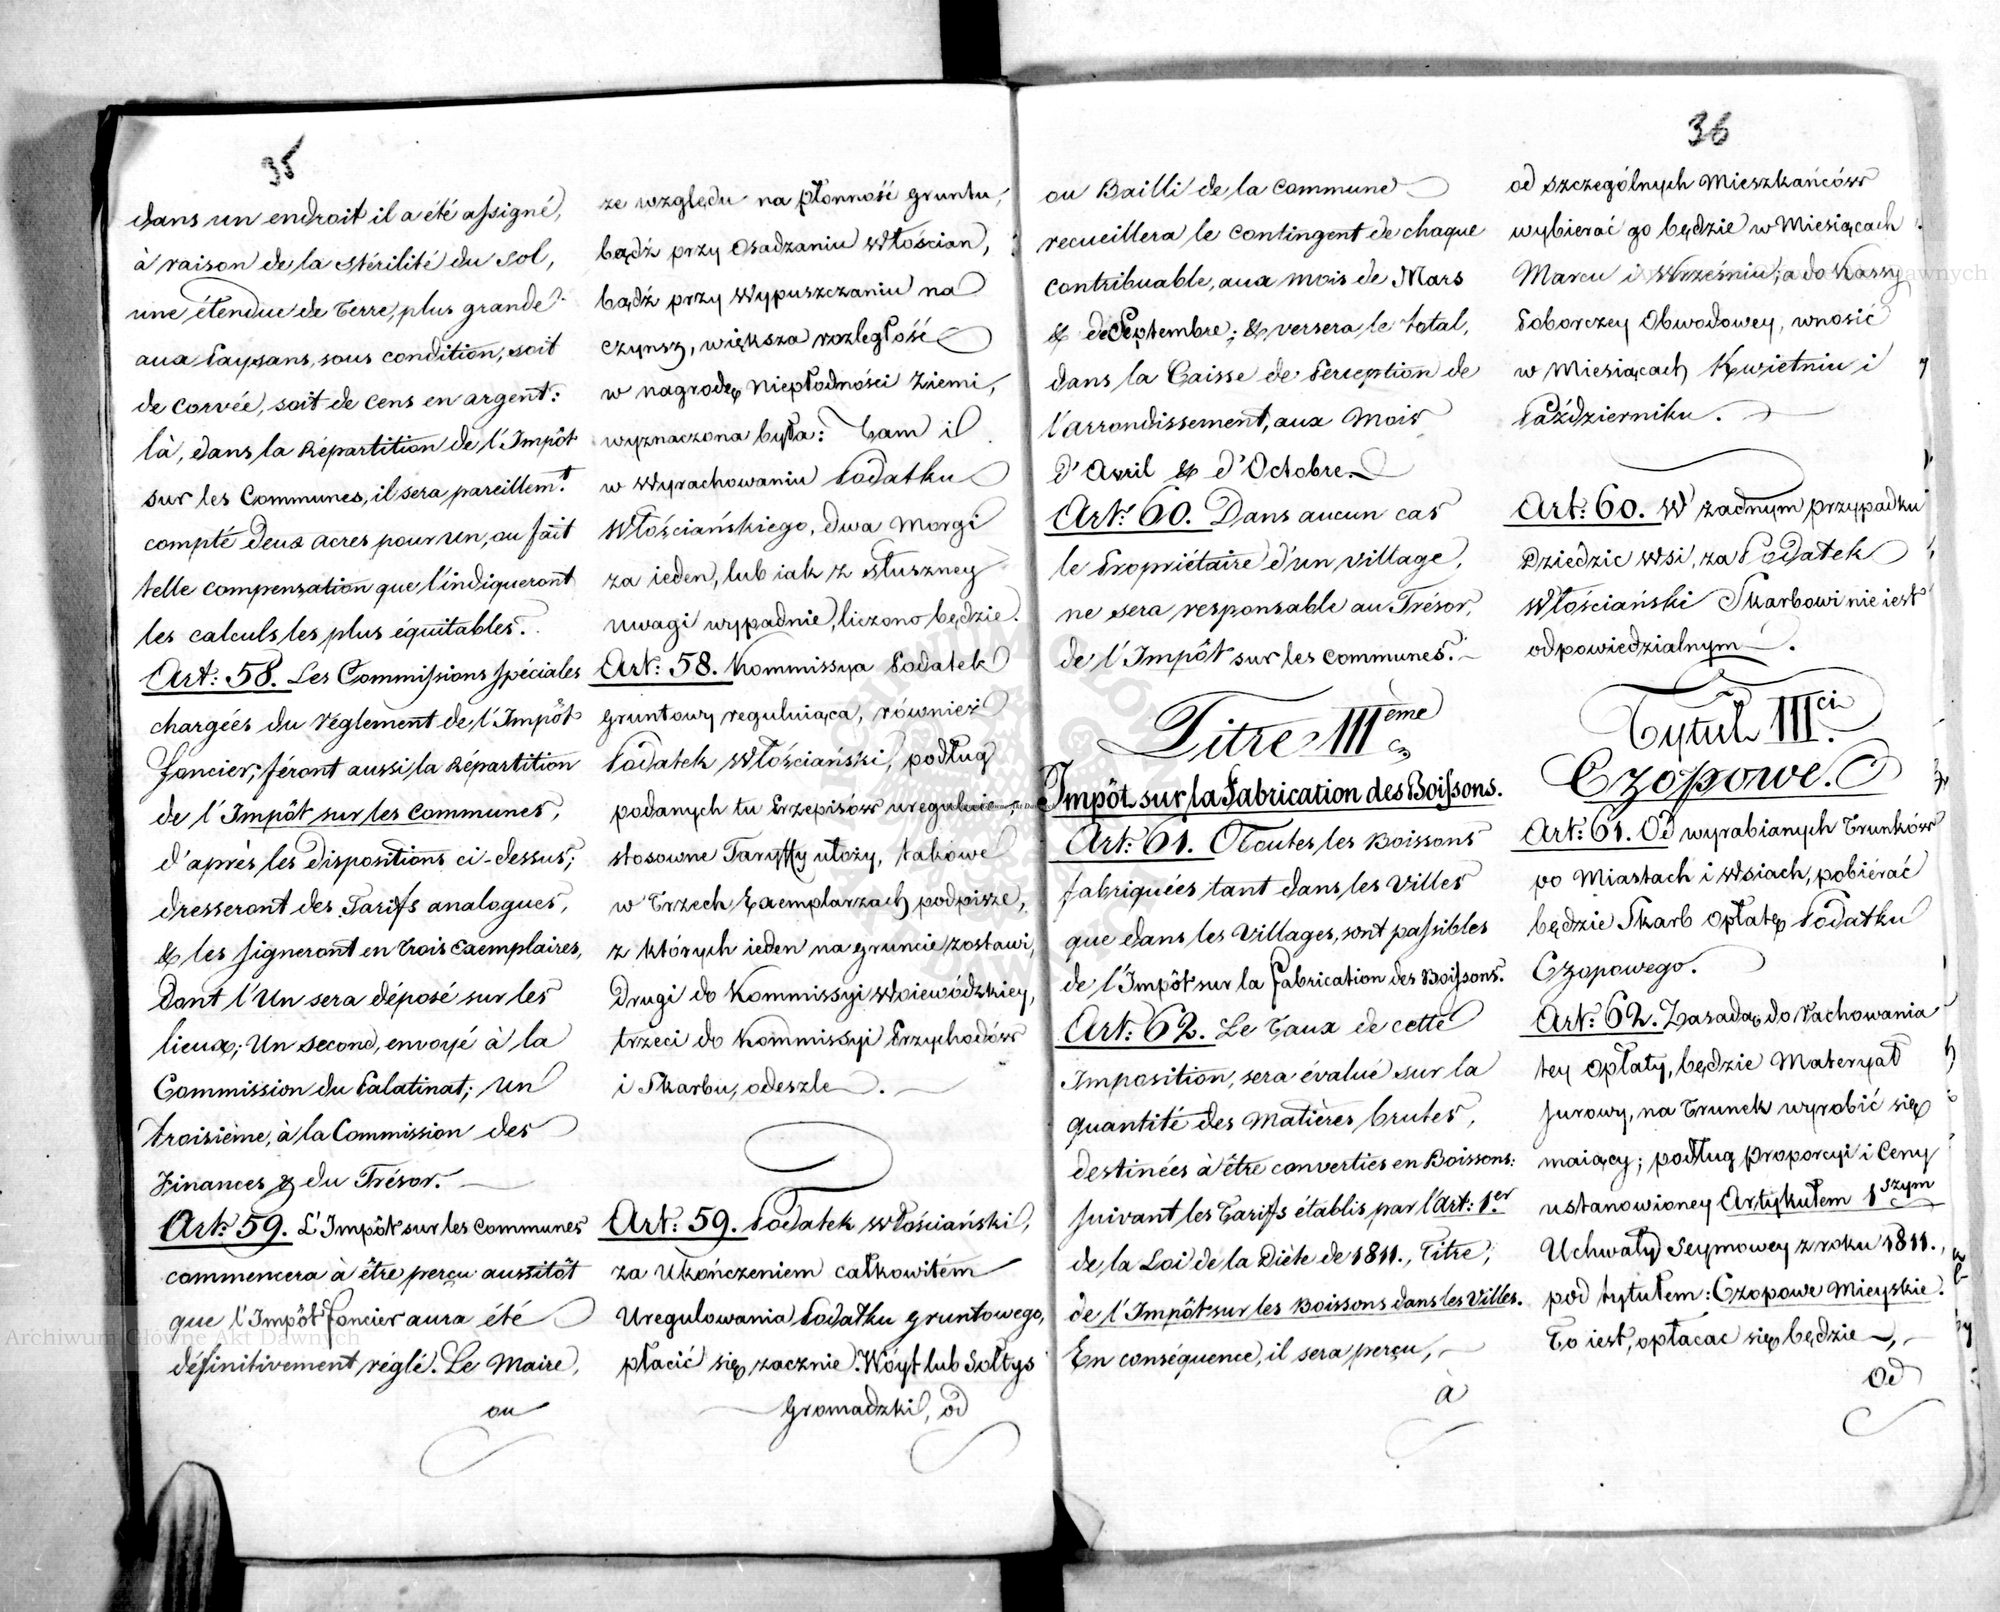 35
dans un endroit il a été assigné,
à raison de la stérilité du sol,
une étendue de Terre, plus grande
aux Paysans, sous condition, soit
de corvée, soit de cens en argent:
là, dans la Répartition de l'Impôt
sur les Communes, il sera pareillemt.
compté deux acres pour un, ou fait
telle compensation que l'indiqueront
les calculs les plus équitables.
Art: 58. Les Commissions spéciales
chargées du Réglement de l'Impôt
foncier, féront aussi la Répartition
de l'Impôt sur les communes,
d'après les dispositions ci-dessus;
dresseront des Tarifs analogues,
& les signeront en trois exemplaires,
dont l'Un sera déposé sur les
lieux; Un second, envoyé à la
Commission du Palatinat; un
troisième, à la Commission des
Finances & du Trésor.
Art: 59. L'Impôt sur les communes
commencera à être perçu aussitôt
que l'Impôt foncier aura été
définitivement réglé. Le Maire,
ou
ze względu na płonność gruntu,
bądź przy osadzaniu Włościan,
bądź przy Wypuszczaniu na
czynsz, większa rozległość
w nagrodę niepłodności Ziemi,
wyznaczona była: Tam i
w Wyrachowaniu Podatku
Włościańskiego, dwa Morgi
za ieden, lub iak z słuszney
uwagi wypadnie, liczono będzie.
Art: 58. Kommissya Podatek
gruntowy reguluiąca, również
Podatek Włościański, podług
podanych tu Przepisów ureguluie,
stosowne Taryffy ułoży, takowe
w Trzech Exemplarzach podpisze,
z których ieden na gruncie zostawi,
Drugi do Kommissyi Woiewódzkiey,
trzeci do Kommissyi Przychodów
i Skarbu, odeszle.
Art: 59. Podatek włościański,
za Ukończeniem całkowitém
Uregulowania Podatku gruntowego,
płacić się zacznie. Wóyt lub Sołtys
Gromadzki, od
36
ou Bailli de la commune
recueillera le contingent de chaque
contribuable, aux mois de Mars
& de Septembre; & versera le total,
dans la Caisse de Perception de
l'arrondissement, aux Mois
d'Avril & d'Octobre.
Art: 60. Dans aucun cas
le Propriétaire d'un village,
ne sera responsable au Trésor,
de l'Impôt sur les communes.
Titre IIIème
Impôt sur la Fabrication des Boissons.
Art: 61. Toutes les Boissons
fabriquées tant dans les Villes
que dans les Villages, sont passibles
de l'Impôt sur la fabrication des Boissons.
Art: 62. Le Taux de cette
Imposition, sera évalué sur la
quantité des Matières brutes,
destinées à être converties en Boissons:
suivant les Tarifs établis par l'Art: 1er
de la Loi de la Diète de 1811., Titre,
de l'Impôt sur les Boissons dans les Villes.
En conséquence, il sera perçu,
à
od szczególnych Mieszkańców
wybierać go będzie w Miesiącach
Marcu i Wrześniu, a do Kassy
Poborczey Obwodowey, wnosić
w Miesiącach Kwietniu i
Październiku.
Art: 60. W żadnym przypadku
Dziedzic wsi, za Podatek
Włościański Skarbowi nie iest
odpowiedzialnym.
Tytuł IIIci.
Czopowe.
Art: 61. Od wyrabianych Trunków
po Miastach i Wsiach, pobiérać
będzie Skarb opłatę Podatku
Czopowego.
Art: 62. Zasadą do rachowania
tey opłaty, będzie Materyał
surowy, na Trunek wyrobić się
maiący; podług proporcyi i Ceny
ustanowioney Artykułem 1szym
Uchwały Seymowey z roku 1811.,
pod tytułem: Czopowe Mieyskie.
To iest, opłacac się będzie,
Od
Archiwum Główne Akt Dawnych